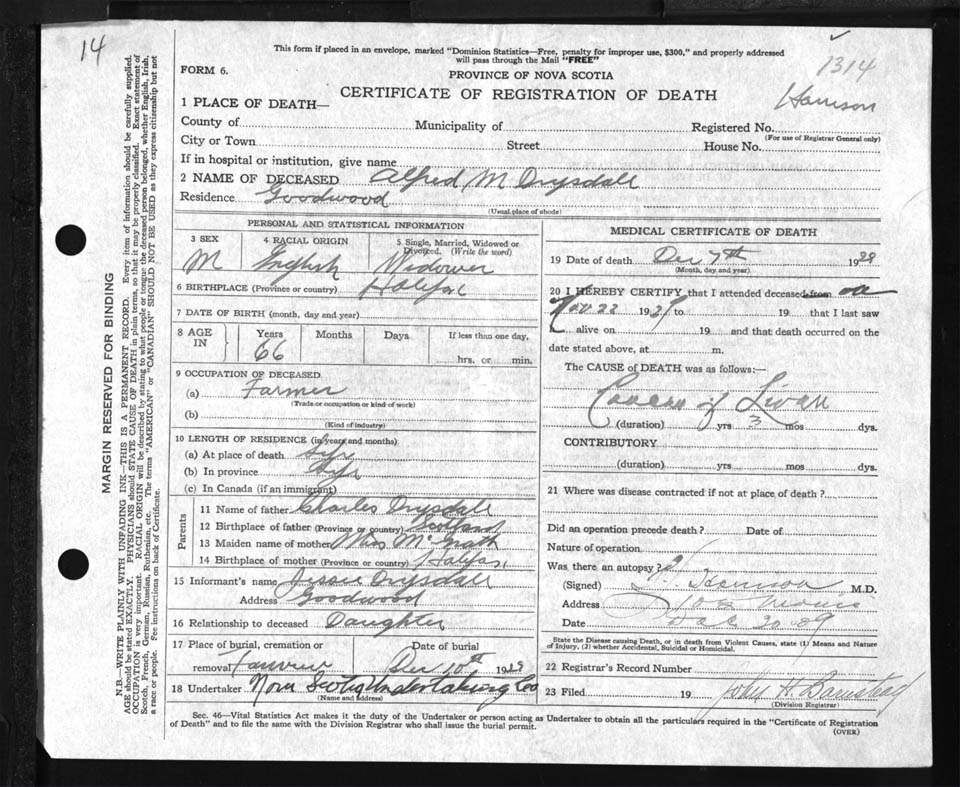 14
This form if placed in an envelope, marked "Dominion Statistics—Free, penalty for improper use, $300," and properly addressed
will pass through the Mail "FREE"
1314
FORM 6.
PROVINCE OF NOVA SCOTIA
CERTIFICATE OF REGISTRATION OF DEATH
Harrison
1 PLACE OF DEATH—
County of Municipality of Registered No.
(For use of Registrar General only)
City or Town Street House No.
If in hospital or institution, give name
2 NAME OF DECEASED Alfred M Drysdale
Residence Goodwood
(Usual place of abode)
PERSONAL AND STATISTICAL INFORMATION
3 SEX 4 RACIAL ORIGIN 5 Single, Married, Widowed or
Divorced. (Write the word)
M English Widower
6 BIRTHPLACE (Province or country) Halifax
7 DATE OF BIRTH (month, day and year)
8 AGE IN Years Months Days If less than one day,
66 hrs. or min.
9 OCCUPATION OF DECEASED
(a) Farmer
(Trade or occupation or kind of work)
(b)
(Kind of industry)
10 LENGTH OF RESIDENCE (in years and months)
(a) At place of death Life
(b) In province Life
(c) In Canada (if an immigrant)
Parents
11 Name of father Charles Drysdale
12 Birthplace of father (Province or country) Scotland
13 Maiden name of mother Miss McGrath
14 Birthplace of mother (Province or country) Halifax
15 Informant's name Jessie Drysdale
Address Goodwood
16 Relationship to deceased Daughter
17 Place of burial, cremation or Date of burial
removal Dec 10th 1929
18 Undertaker Nova Scotia Undertaking Co
(Name and address)
MEDICAL CERTIFICATE OF DEATH
19 Date of death Dec 7th 1929
(Month, day and year)
20 I HEREBY CERTIFY that I attended deceased from on
Nov 22 1929 to 19 that I last saw
alive on 19 and that death occurred on
date stated above, at m.
The CAUSE of DEATH was as follows:—
Cancer of Liver
(duration) yrs 3 mos dys.
CONTRIBUTORY
(duration) yrs mos dys.
21 Where was disease contracted if not at place of death?
Did an operation precede death? Date of
Nature of operation
Was there an autopsy?
(Signed) Harrison M.D.
Address
Date Dec 20 29
State the Disease causing Death, or in death from Violent Causes, state (1) Means and Nature
of Injury, (2) whether Accidental, Suicidal or Homicidal.
22 Registrar's Record Number
23 Filed 19 John H Barnstead
(Division Registrar)
Sec. 46—Vital Statistics Act makes it the duty of the Undertaker or person acting as Undertaker to obtain all the particulars required in the "Certificate of Registration
of Death" and to file the same with the Division Registrar who shall issue the burial permit.
(OVER)
MARGIN RESERVED FOR BINDING
N.B.—WRITE PLAINLY WITH UNFADING INK—THIS IS A PERMANENT RECORD. Every item of information should be carefully supplied.
AGE should be stated EXACTLY. PHYSICIANS should STATE CAUSE OF DEATH in plain terms, so that it may be properly classified. Exact statement of
OCCUPATION is very important. RACIAL ORIGIN will be described by stating to what people or tongue the deceased person belonged, whether English, Irish,
Scotch, French, German, Russian, Ruthenian, etc. The terms "AMERICAN" or "CANADIAN" SHOULD NOT BE USED as they express citizenship but not
a race or people. Fee instructions on back of Certificate.